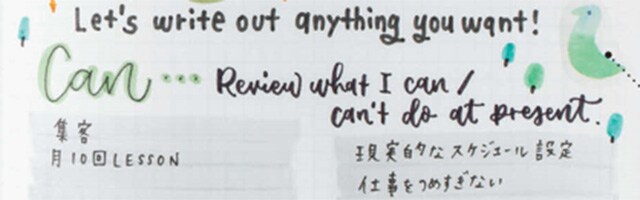 Let's write out anything you want!
Can... Review what I can /
can't do at present.
集客
月10回LESSON
現実的なスケジュール設定
仕事をつめすぎない